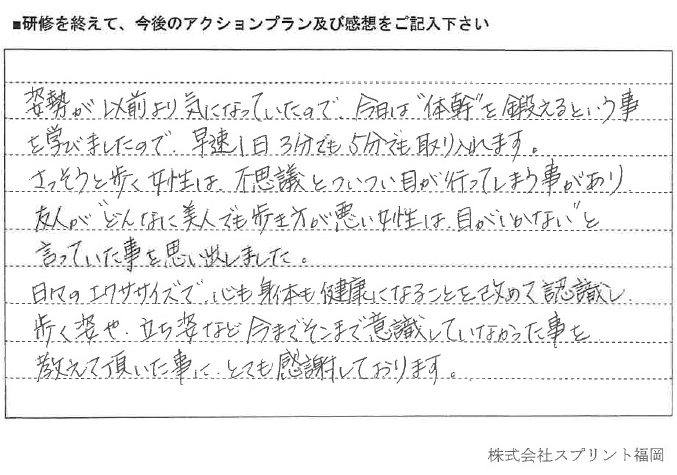 ■研修を終えて、今後のアクションプラン及び感想をご記入下さい
姿勢が以前より気になっていたので、今日は"体幹"を鍛えるという事
を学びましたので、早速1日3分でも5分でも取り入れます。
さっそうと歩く女性は、不思議とついつい目が行ってしまう事があり
友人が"どんなに美人でも歩き方が悪い女性は目がいかない"と
言っていた事を思い出しました。
日々のエクササイズで、心も身体も健康になることを改めて認識し
歩く姿や、立ち姿など今までそこまで意識していなかった事を
教えて頂いた事に、とても感謝しております。
株式会社スプリント福岡